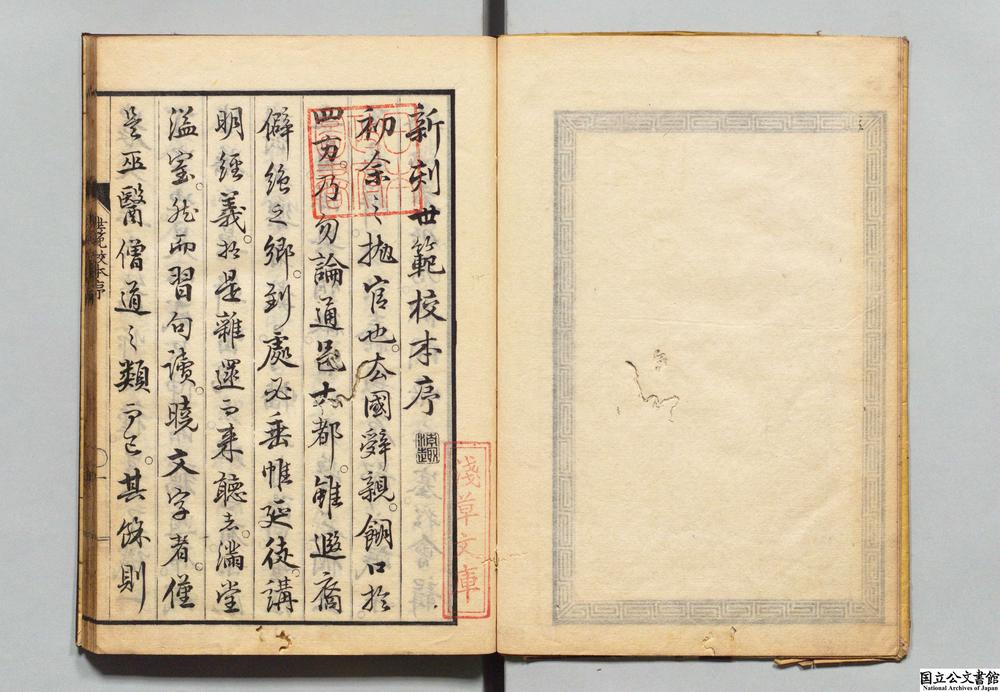 新刻世範校本序
初余之抛官也。去國辭親。餬口於
四方。乃勿論通邑大都。雖遐裔
僻絕之鄉。到處必垂帷延徒。講
明經義。於是雜遝而來聽者。滿堂
溢室。然而習句讀。曉文字者。僅
是巫醫僧道之類而已。其餘則
世範校本序
淺草文庫
国立公文書館
National Archives of Japan